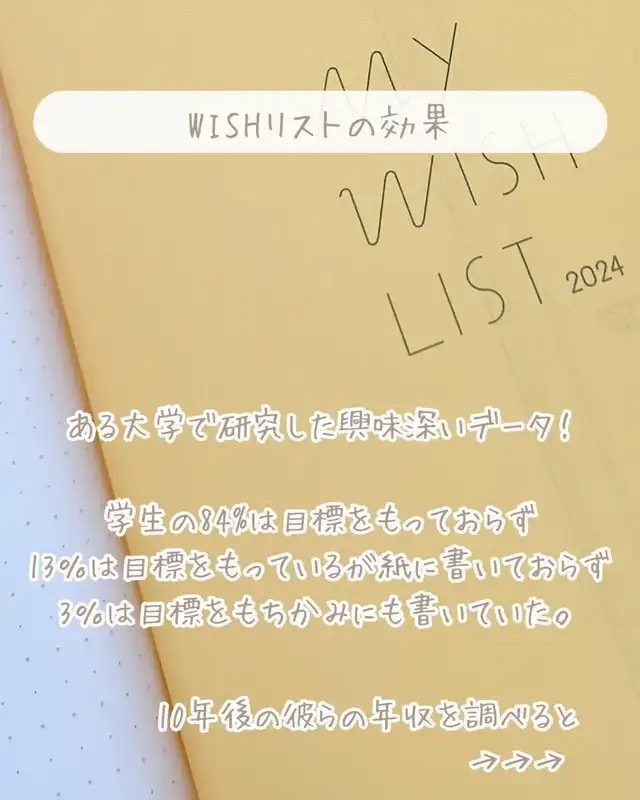 MY
WISHリストの効果
WISH
LIST 2024
ある大学で研究した興味深いデータ!
学生の84%は目標をもっておらず
13%は目標をもっているが紙に書いておらず
3%は目標をもちかみにも書いていた。
10年後の彼らの年収を調べると
→→→